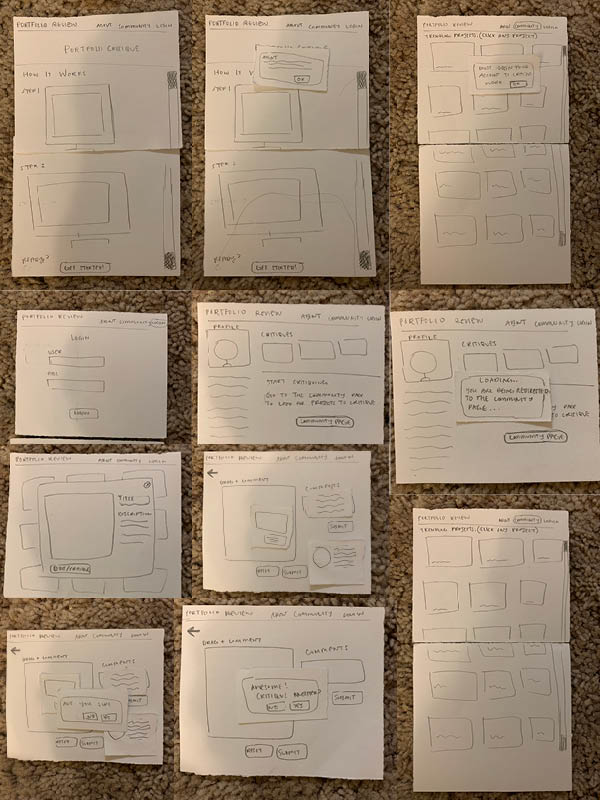 PORTFOLIO REVIEW ABOUT COMMUNITY LOGIN
PORTFOLIO CRITIQUE
HOW IT WORKS
STEP 1
STEP 2
READY?
GET STARTED!
PORTFOLIO REVIEW ABOUT COMMUNITY LOGIN
ABOUT
OK
HOW IT W
STEP 1
STEP 2
READY?
GET STARTED!
PORTFOLIO REVIEW ABOUT COMMUNITY LOGIN
TRENDING PROJECTS. (CLICK ANY PROJECT)
ACCOUNT TO CRITIQUE
WORK.
OK
PORTFOLIO REVIEW ABOUT COMMUNITY LOGIN
LOGIN
USER
LOGIN
PORTFOLIO REVIEW ABOUT COMMUNITY LOGIN
PROFILE
CRITIQUES
START CRITIQUING
GO TO THE COMMUNITY PAGE
TO LOOK FOR PROJECTS TO CRITIQUE
COMMUNITY PAGE
PORTFOLIO REVIEW ABOUT COMMUNITY LOGIN
PROFILE
CRITIQUES
LOADING...
YOU ARE BEING REDIRECTED
TO THE COMMUNITY
PAGE...
PAGE
TO CRITIQUE
COMMUNITY PAGE
PORTFOLIO REVIEW ABOUT COMMUNITY LOGIN
TITLE
DESCRIPTION
PORTFOLIO REVIEW ABOUT COMMUNITY LOGIN
DRAG + COMMENT
COMMENTS
SUBMIT
RESET SUBMIT
PORTFOLIO REVIEW ABOUT COMMUNITY LOGIN
TRENDING PROJECTS. (CLICK ANY PROJECT)
PORTFOLIO REVIEW ABOUT COMMUNITY LOGIN
DRAG + COMMENT
COMMENTS
ARE YOU SURE
NO YES
RESET SUBMIT
PORTFOLIO REVIEW ABOUT COMMUNITY LOGIN
DRAG + COMMENT
COMMENTS
AWESOME!
CRITIQUE ANOTHER?
NO YES
SUBMIT
RESET SUBMIT